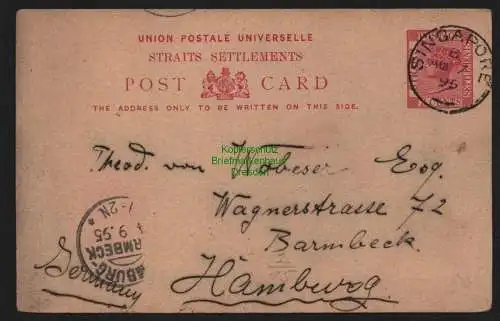 UNION POSTALE UNIVERSELLE
STRAITS SETTLEMENTS
POST CARD
THE ADDRESS ONLY TO BE WRITTEN ON THIS SIDE.
SINGAPORE
95
Kopierschutz
Briefmarkenhaus
Dresden
Theod. von Wobeser Esq.
Wagnerstrasse 72
Barmbeck
Hamburg
Germany
1-2N
9.95